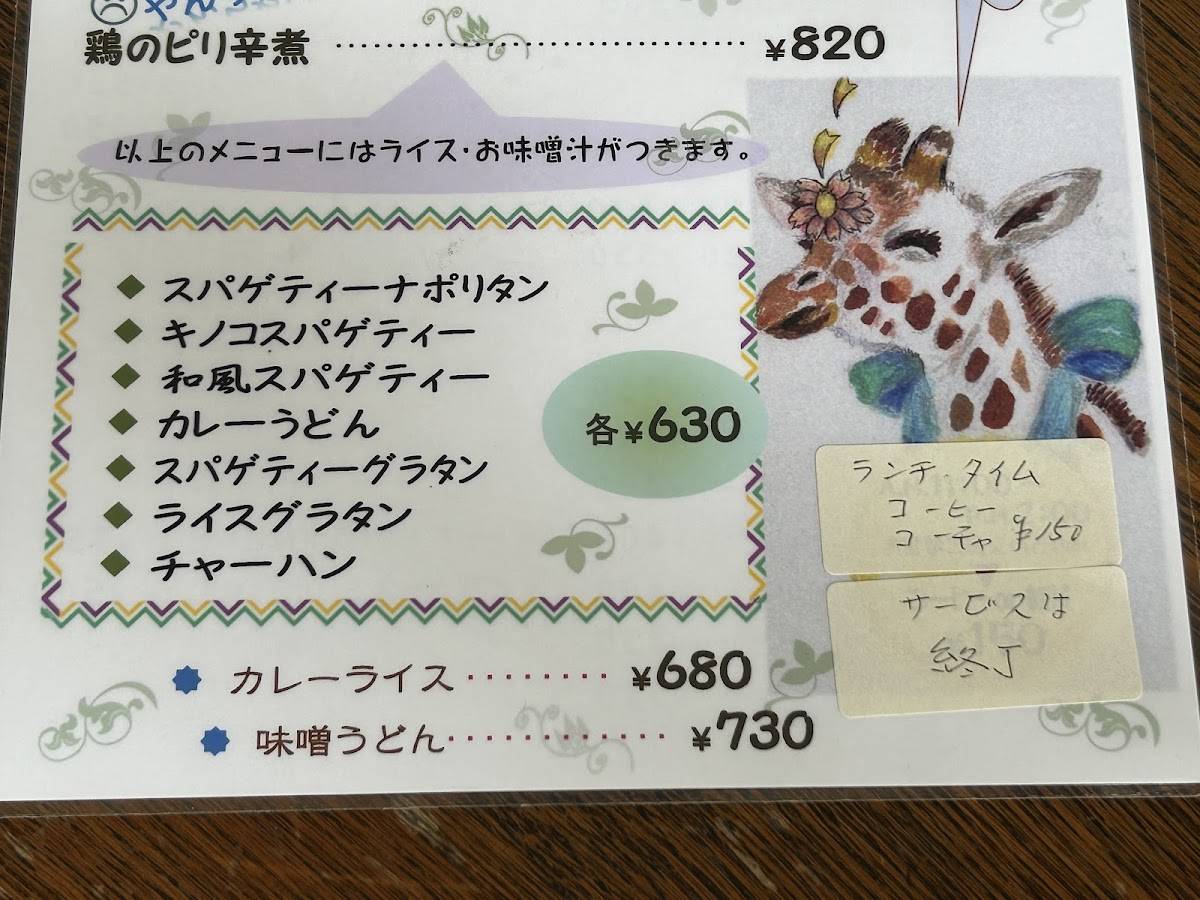 鶏のピリ辛煮 ¥820
以上のメニューにはライス・お味噌汁がつきます。
スパゲティーナポリタン
キノコスパゲティー
和風スパゲティー
カレーうどん
スパゲティーグラタン
ライスグラタン
チャーハン
各¥630
カレーライス ¥680
味噌うどん ¥730
ランチ・タイム
コーヒー
コーチャ ¥150
サービスは
終了